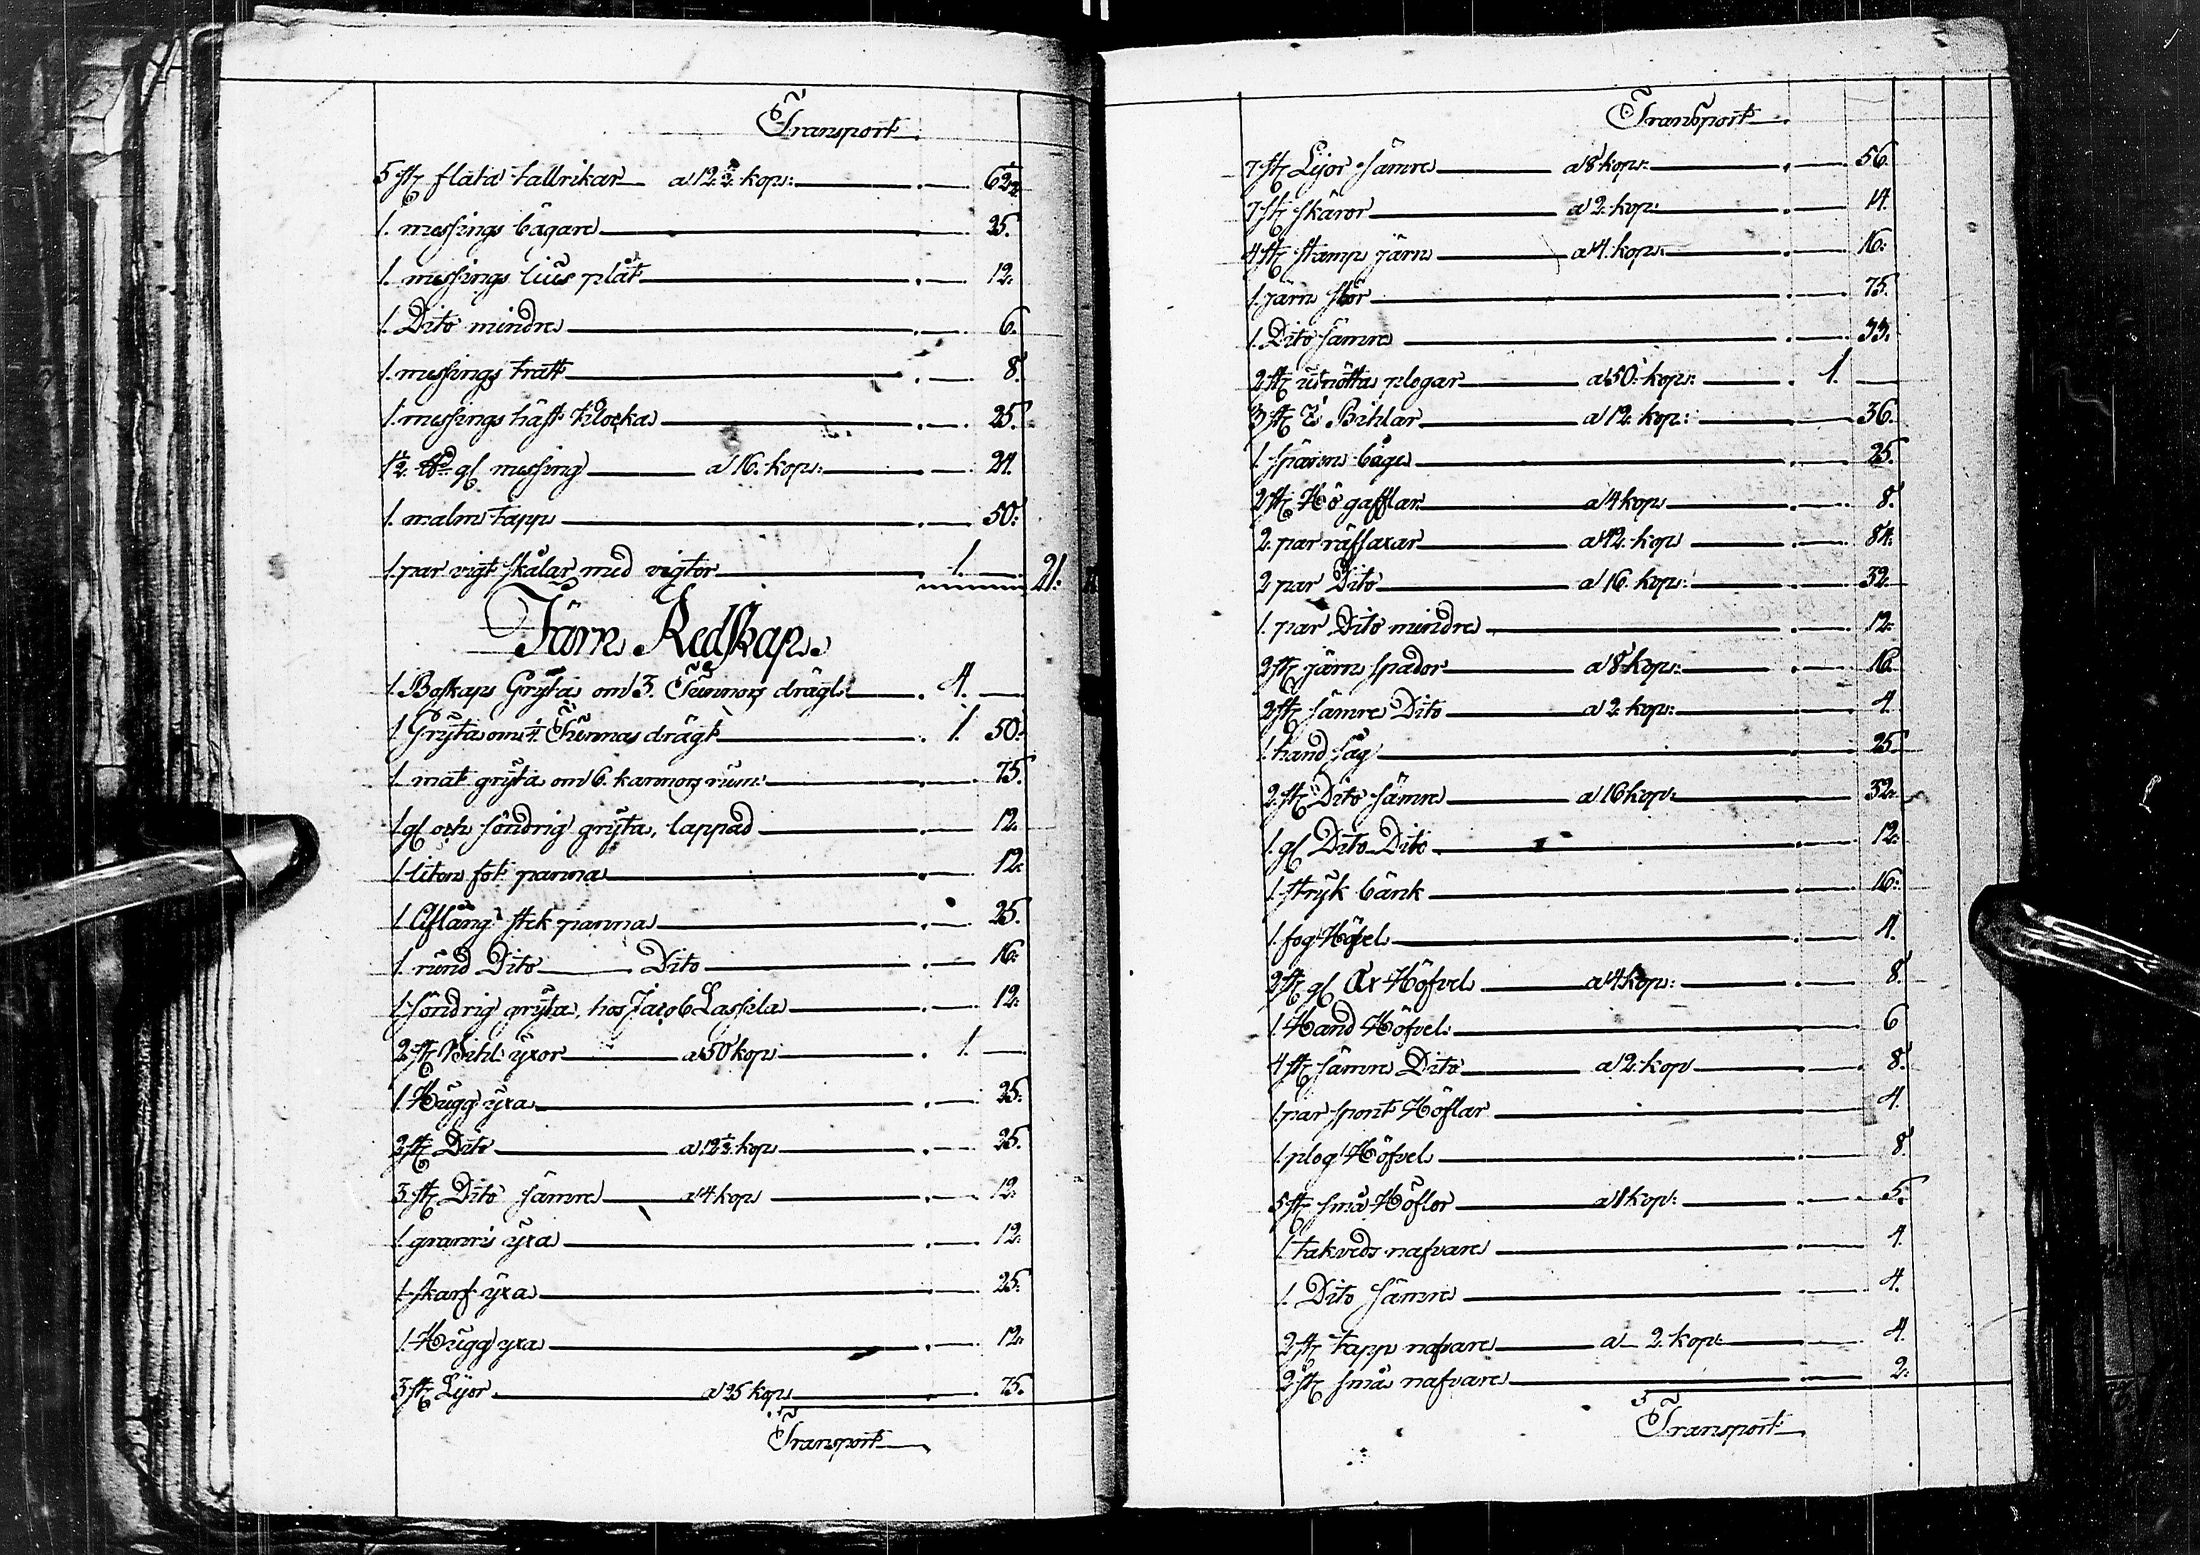 Transport
5 st flata tallrikar a 12½ kop: 62½
1. messings bägare 25.
1. messings lius plåt 12.
1 Dito mindre 6.
1. messings tratt 8.
1. messings häst klocka 25.
1½ ℔ gl messing a 16. kop: 24.
1. malm tapp 50.
1. par vigt skålar med vigtor 1. — 21.
Järn Redskap.
1. Boskaps Gryta om 3. Tunnors drägt 4. —
1 Gryta om Tunnas drägt 1. 50.
1. mat gryta om 6. kannors rum: 75.
1 gl och söndrig gryta, lappad 12.
1 liten fot panna 12.
1 Aflång stek panna 25.
1. rund Dito Dito 16.
1 söndrig gryta, hos Jacob Lassila 12.
2 st Bihl: yxor a 50 kop 1. —
1 Hugg yxa 25.
2 st Dito a 12½ kop 25.
3 st Dito sämre a 4 kop 12.
1 granris yxa 12.
1 skarf yxa 25.
1 Hugg yxa 12.
3 st Lÿor a 25 kop 75.
Transport
Transport
7 st Lijor sämre a 8 kop: 56.
7 st skäror a 2. kop: 14.
4 st stamp järn a 4. kop: 16.
1. järn stör 75.
1. Dito sämre 33.
2 st utnötta plogar a 50. kop: 1. —
3 st Bihlar a 12. kop: 36.
1 spänn båge 25.
2 st Hö gafflar a 4 kop 8.
2. par räfsaxar a 42. kop 84.
2 par Dito a 16. kop: 32.
1. par Dito mindre 12.
2 st järn spador a 8 kop: 16.
2 st sämre Dito a 2. kop: 4.
1. hand såg 25
2. st Dito sämre a 16 kop: 32.
1. gl Dito Dito 12.
1 stryk bänk 16.
1. fog Höfvel 4.
2 st gl Höfvel a 4 kop: 8.
1. Hand Höfvel: 6
4 st sämre Dito a 2. kop 8.
1 par spont Höflar 4.
1 plog Höfvel 8.
5 st små Höflor a 1 kop: 5.
1 takveds nafvare 4.
1. Dito sämre 4.
2 st tapp nafvare a 2. kop: 4.
2 st små nafvare 2.
Transport